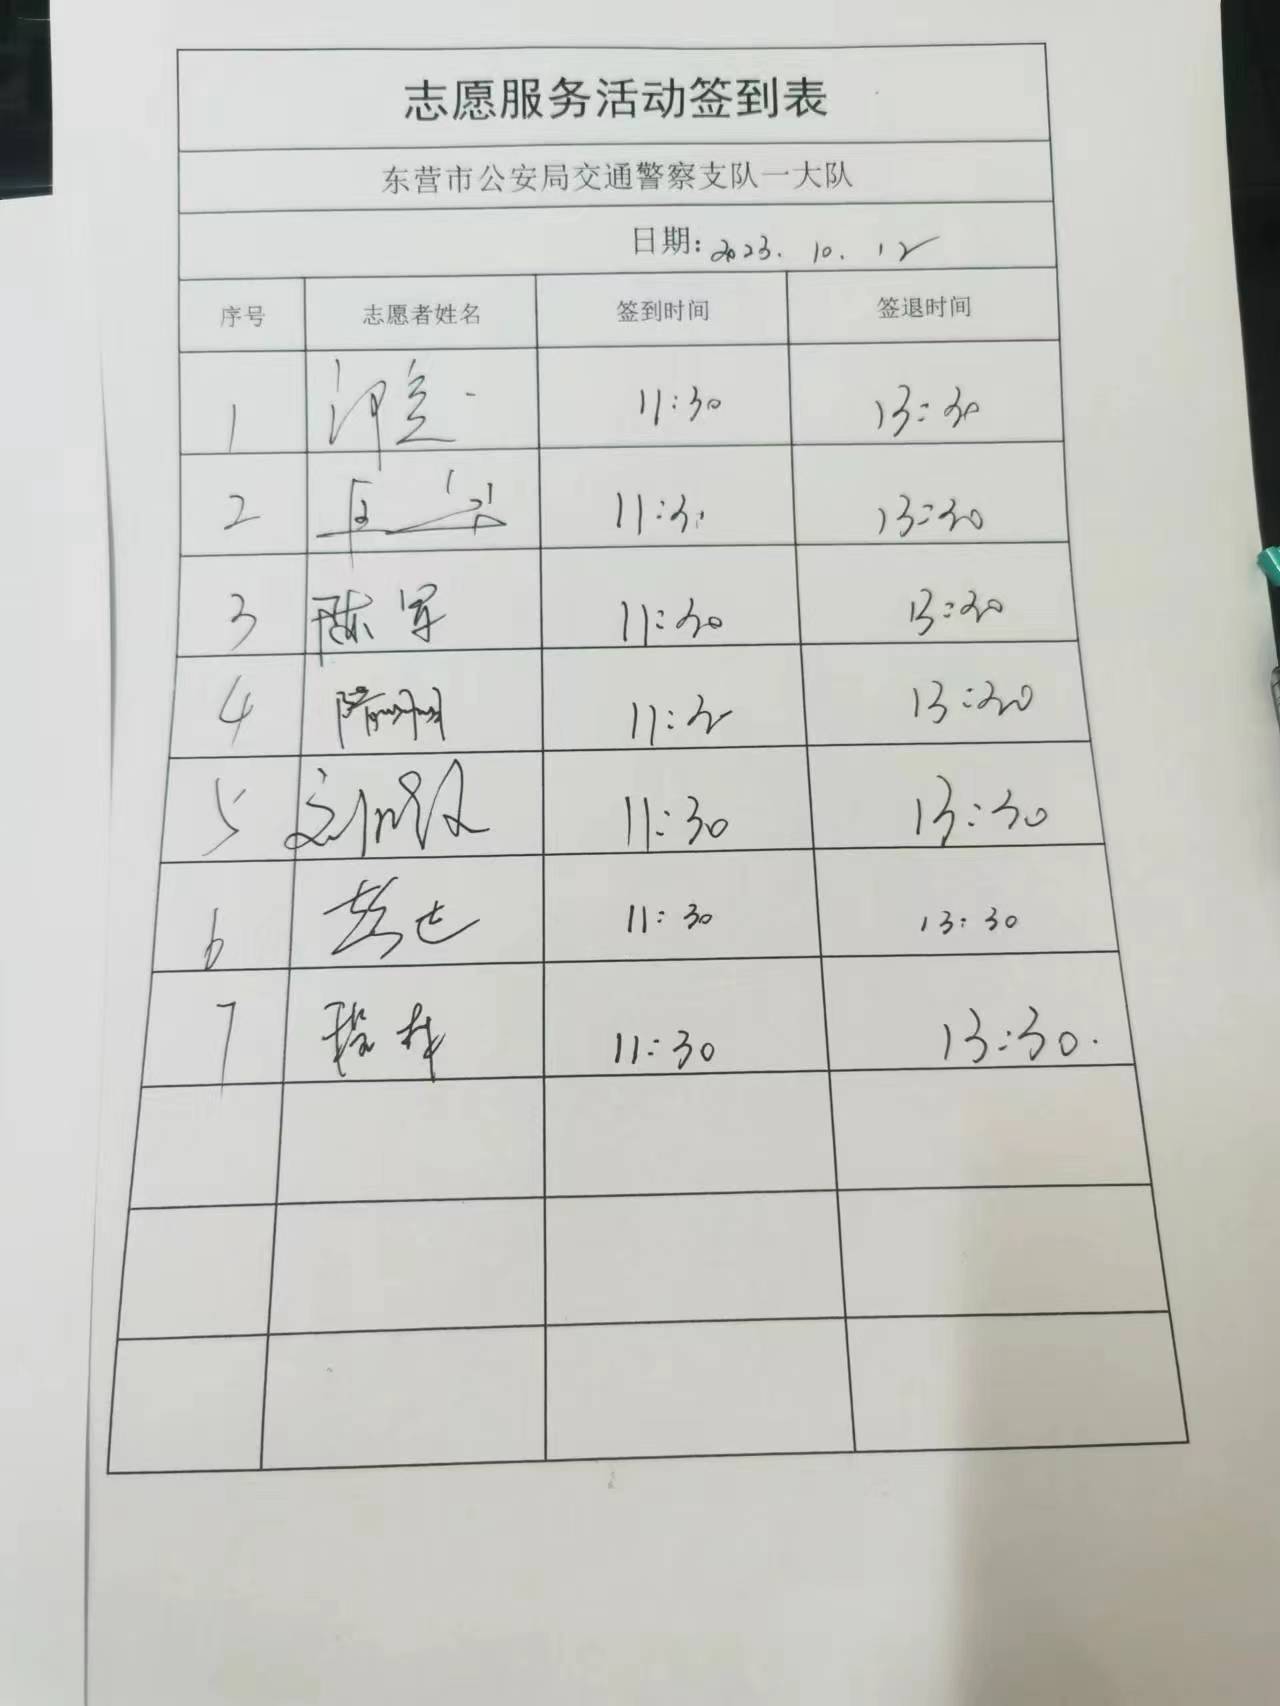 志愿服务活动签到表
东营市公安局交通警察支队一大队
日期: 2023. 10. 12
序号 志愿者姓名 签到时间 签退时间
1 11:30 13:30
2 11:30 13:30
3 陈军 11:30 13:30
4 11:30 13:30
5 11:30 13:30
6 11:30 13:30
7 11:30 13:30.